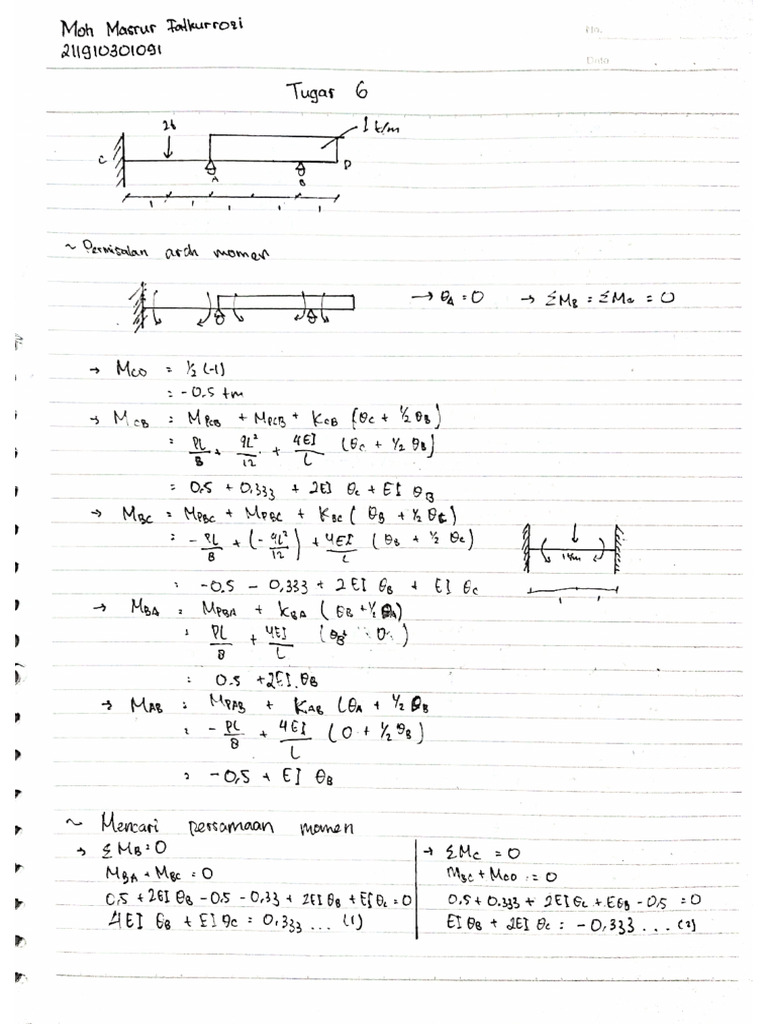 Moh Masrur Fatkurrozi
211910301091
No.
Date
Tugas 6
2t
1 t/m
C
A
B
D
1 1 1 1 1
~ Permisalan arah momen
→ θA = 0 → ΣMB = ΣMC = 0
→ MCD = 1/2 (-1)
= -0.5 tm
→ MCB = MPCB + MPCB + KCB (θC + 1/2 θB)
= PL/8 + qL²/12 + 4EI/L (θC + 1/2 θB)
= 0.5 + 0,333 + 2EI θC + EI θB
→ MBC = MPBC + MPBC + KBC (θB + 1/2 θC)
= -PL/8 + (-qL²/12) + 4EI/L (θB + 1/2 θC)
= -0.5 - 0,333 + 2EI θB + EI θC
→ MBA = MPBA + KBA (θB + 1/2 θA)
= PL/8 + 4EI/L (θB + 0)
= 0.5 + 2EI.θB
→ MAB = MPAB + KAB (θA + 1/2 θB
= -PL/8 + 4EI/L (0 + 1/2 θB)
= -0,5 + EI θB
1 1
~ Mencari persamaan momen
→ ΣMB = 0
MBA + MBC = 0
0.5 + 2EI θB - 0.5 - 0.33 + 2EI θB + EI θC = 0
4EI θB + EI θC = 0,333 ... (1)
→ ΣMC = 0
MBC + MCD = 0
0.5 + 0.333 + 2EI θC + EθB - 0.5 = 0
EI θB + 2EI θC = -0,333 ... (2)